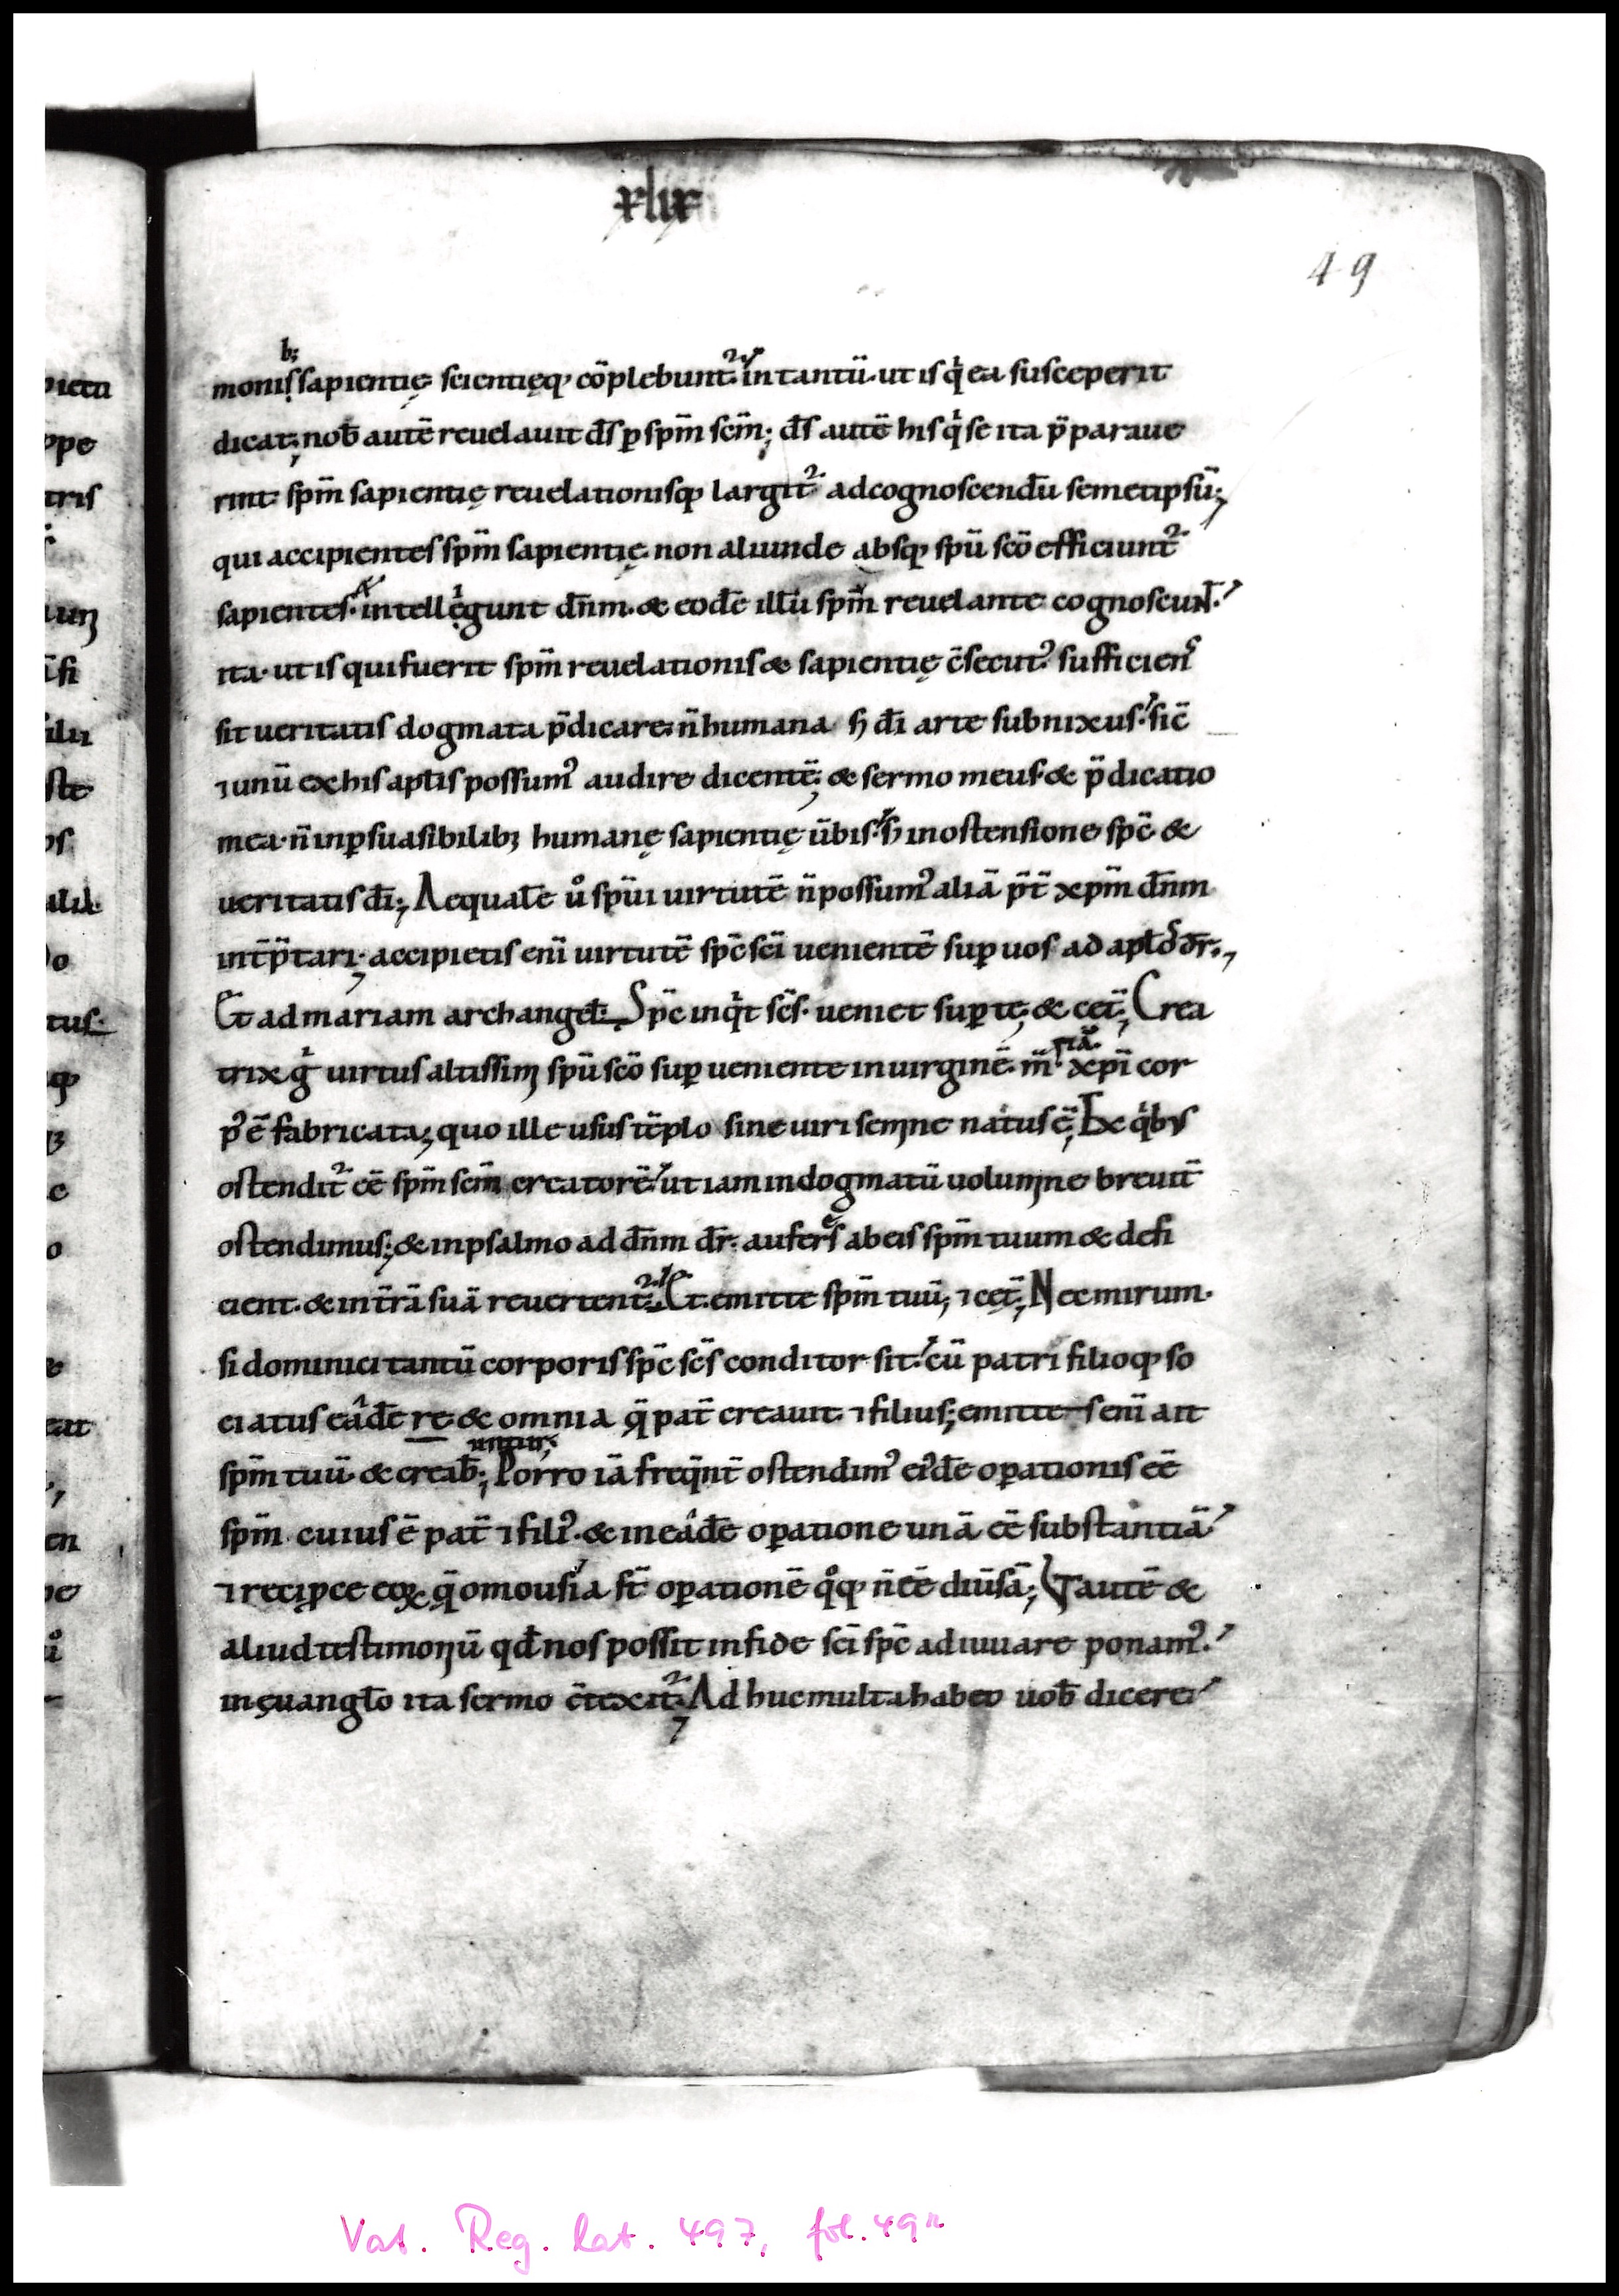 xlix
49
b;
moniſ ſapientię ſcientięq; cōplebunt᷑ in tantū. ut iſ qͥ ea ſuſceperit
dicat; nob̄ autē reuelauit d̄ſ ꝑ ſpm̄ ſcm̄; d̄ſ autē hiſ qͥ ſe ita p̄paraue
rint ſpm̄ ſapientię reuelationiſq; largit᷑ ad cognoſcendū ſemetipſū;
qui accipienteſ ſpm̄ ſapientię non aliunde abſq; ſpū ſcō efficiunt᷑
ſapienteſ. intellegunt dn̄m. & eodē illū ſpm̄ reuelante cognoſcuNT̄.
ita. ut iſ qui fuerit ſpm̄ reuelationiſ & ſapientię c̄ſecut᷒ ſufficienſ
ſit ueritatiſ dogmata p̄dicare. n̄ humana ſꝫ dī arte ſubnixuſ. ſic̄
⁊ unū ex hiſ apl̄iſ poſſum᷒ audire dicentē; & ſermo meuſ. & p̄dicatio
mea. n̄ in ꝑſuaſibilibꝫ humanę ſapientię ūbiſ. ſꝫ in oſtenſione ſpc̄ &
ueritatiſ dī; Aequalē uͦ ſpūi uirtutē n̄ poſſum᷒ aliā p̄t̄ xpm̄ dn̄m
int̄p̄tari; accipietiſ eni̅ uirtutē ſpc̄ ſcī uenientē ſuꝑ uoſ ad apl̄oſ dr̄.;
Et ad mariam archangel̄; Spc̄ inqͥt ſc̄ſ. ueniet ſuꝑ te; & cet̄; Crea
ria.
trix gͥ uirtuſ altiſſimj ſpū ſcō ſuꝑ ueniente in uirginē m̄ xpī cor
p᷒ ē fabricata; quo ille uſuſ tēplo ſine uiri ſemjne natuſ ē; Ex qͥbuſ
oſtendit᷑ eē ſpm̄ ſcm̄ creatorē. ut iam in dogmatū uolumjne breuit̄
oſtendimuſ; & in pſalmo ad dn̄m dr̄. auferſ ab eiſ ſpm̄ tuum & defi
cient. & in t̄rā ſuā reuertent᷑. Et. emitte ſpm̄ tuū; ⁊ cęt̄; Nec mirum.
ſi dominici tantū corporiſ ſpc̄ ſc̄ſ conditor ſit. cū patri filioq; ſo
ciatuſ eādē re & omnia q̄ pat̄ creauit. ⁊ filiuſ; emitteſ eni̅ ait
untur;
ſpm̄ tuū & creab̄; Porro iā freq̄nt̄ oſtendim᷒ eiͥdē oꝑationiſ eē
ſpm̄ cuiuſ ē pat̄ ⁊ fili᷒. & in eādē oꝑatione unā eē ſubſtantiā
⁊ reciꝓce eoꝝ q̄ omouſia ſt̄ oꝑationē qͦq; n̄ eē diūſā; Et autē &
aliud teſtimonjū qd̄ noſ poſſit in fide ſcī ſpc̄ adiuuare ponam᷒.
in ęuangl̄o ita ſermo c̄texit᷑; Ad huc multa habeo uob̄ dicere
Vat. Reg. lat. 497, fol. 49r